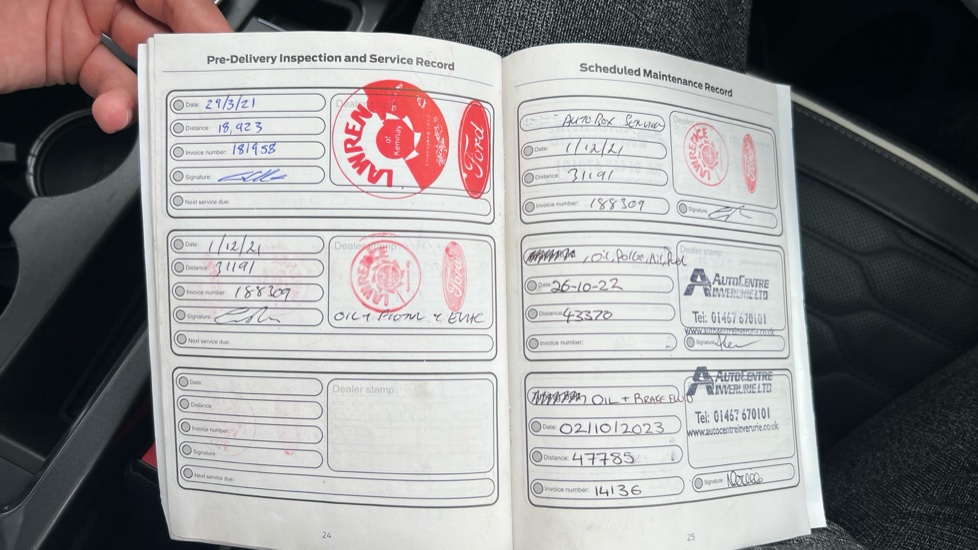 Pre-Delivery Inspection and Service Record
Date: 29/3/21
Distance: 18,923
Invoice number: 181958
Signature:
Next service due:
Dealer
LAWRENCE
of
Kemnay
Ford
Date: 1/12/21
Distance: 31191
Invoice number: 188309
Signature:
Next service due:
Dealer stamp
LAWRENCE
Ford
OIL +
Date:
Distance:
Invoice number:
Signature:
Next service due:
Dealer stamp
24
Scheduled Maintenance Record
AUTO BOX SERVICE
Date: 1/12/21
Distance: 31191
Invoice number: 188309
Dealer
LAWRENCE
Ford
Signature:
Oil, Pollen, Air, Fuel
Date: 26-10-22
Distance: 43370
Invoice number:
Dealer stamp
AUTOCENTRE
INVERURIE LTD
Tel: 01467 670101
www.autocentreinverurie.co.uk
Signature:
OIL + BRAKE FLUID
Date: 02/10/2023
Distance: 47785
Invoice number: 14136
AUTOCENTRE
INVERURIE LTD
Tel: 01467 670101
www.autocentreinverurie.co.uk
Signature:
25